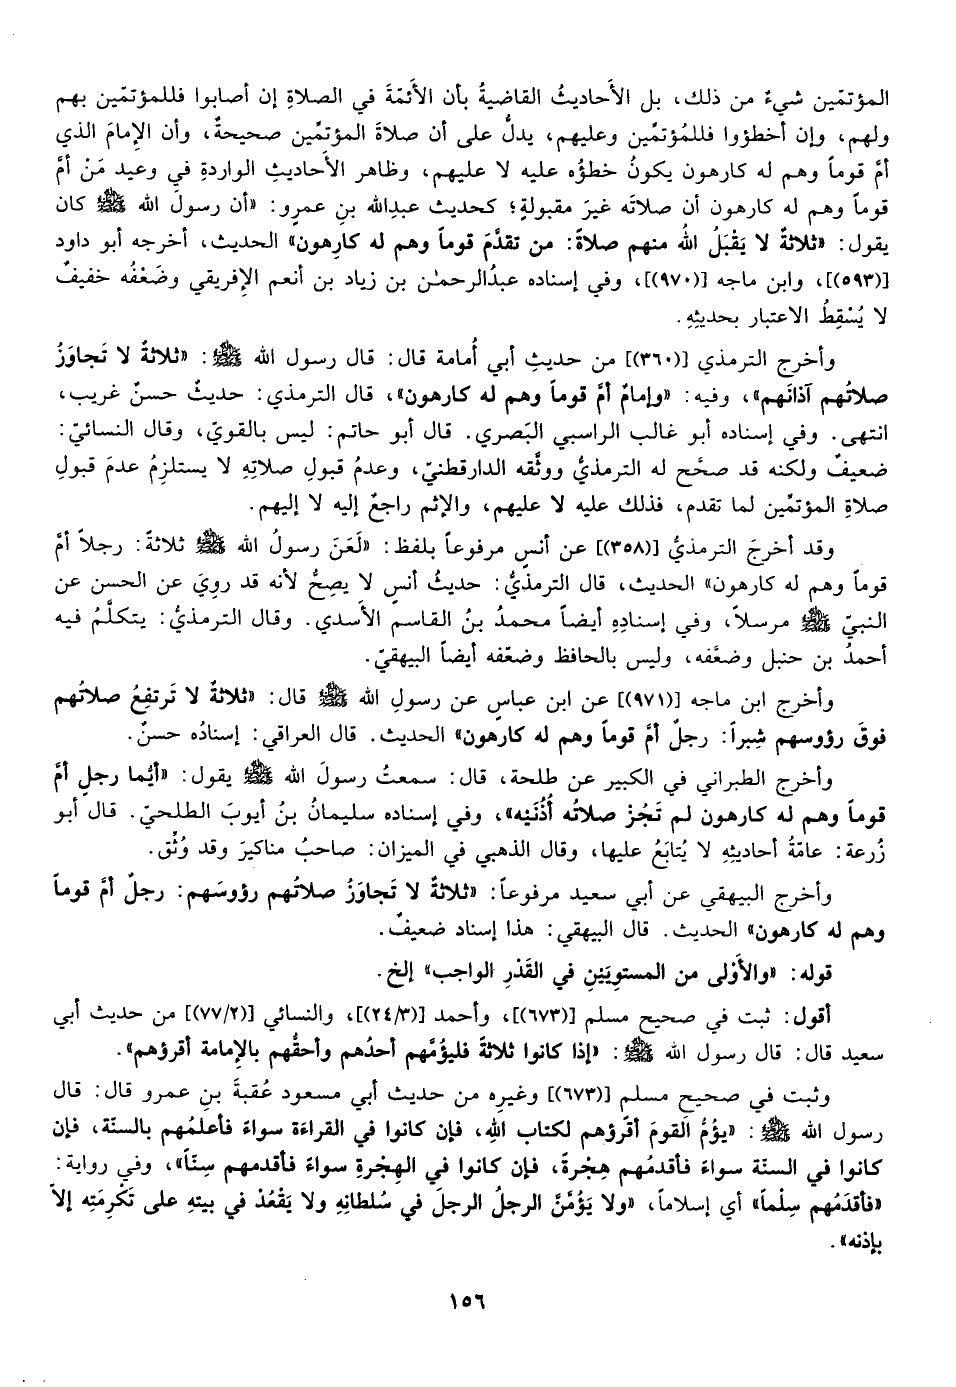 المؤتمّين شيءٌ من ذلك، بل الأَحاديثُ القاضيةُ بأن الأَئمّةَ في الصلاةِ إن أصابوا فللمؤتمّين بهم
ولهم، وإن أخطؤوا فللمُؤتمِّين وعليهم، يدلُّ على أن صلاةَ المؤتمِّين صحيحةٌ، وأن الإِمامَ الذي
أمَّ قوماً وهم له كارهون يكونُ خطؤُه عليه لا عليهم، وظاهر الأَحاديثِ الواردةِ في وعيد مَنْ أمَّ
قوماً وهم له كارهون أن صلاتَه غيرَ مقبولةٍ؛ كحديث عبدِالله بنِ عمرٍو: «أن رسولَ الله ﷺ كان
يقول: «ثلاثةٌ لا يَقْبَلُ اللهُ منهم صلاةً: من تقدَّمَ قوماً وهم له كارِهون» الحديث، أخرجه أبو داود
[(٥٩٣)]، وابن ماجه [(٩٧٠)]، وفي إسناده عبدُالرحمٰن بن زياد بن أنعم الإِفريقي وضَعْفُه خفيفٌ
لا يُسْقِطُ الاعتبار بحديثِهِ.
وأخرج الترمذي [(٣٦٠)] من حديثِ أبي أُمامة قال: قال رسول الله ﷺ: «ثلاثةٌ لا تَجاوَزُ
صلاتُهم آذانَهم»، وفيه: «وإمامٌ أمَّ قوماً وهم له كارهون»، قال الترمذي: حديثٌ حسنٌ غريب،
انتهى. وفي إسناده أبو غالب الراسبي البَصري. قال أبو حاتم: ليس بالقويّ، وقال النسائيّ:
ضعيفٌ ولكنه قد صحَّح له الترمذيُّ ووثَّقه الدارقطنيّ، وعدمُ قبولِ صلاتِهِ لا يستلزِمُ عدمَ قبولِ
صلاةِ المؤتمِّين لما تقدم، فذلك عليه لا عليهم، والإثم راجعٌ إليه لا إليهم.
وقد أخرجَ الترمذيُّ [(٣٥٨)] عن أنسٍ مرفوعاً بلفظ: «لَعَنَ رسولُ الله ﷺ ثلاثةً: رجلاً أمَّ
قوماً وهم له كارهون» الحديث، قال الترمذيُّ: حديثُ أنسٍ لا يصِحُّ لأنه قد رويَ عن الحسن عن
النبيّ ﷺ مرسلاً، وفي إسنادِهِ أيضاً محمدُ بنُ القاسم الأَسدي. وقال الترمذيُّ: يتكلَّمُ فيه
أحمدُ بن حنبل وضعَّفه، وليس بالحافظ وضعّفه أيضاً البيهقيّ.
وأخرج ابن ماجه [(٩٧١)] عن ابن عباسٍ عن رسولِ الله ﷺ قال: «ثلاثةٌ لا تَرتفِعُ صلاتُهم
فوقَ رؤوسهم شِبراً: رجلٌ أمَّ قوماً وهم له كارهون» الحديث. قال العراقي: إسنادُه حسنٌ.
وأخرج الطبراني في الكبير عن طلحة، قال: سمعتُ رسولَ الله ﷺ يقول: «أيُّما رجلٍ أمَّ
قوماً وهم له كارهون لم تَجُزْ صلاتُه أُذُنَيْه»، وفي إسناده سليمانُ بنُ أيوبَ الطلحيّ. قال أبو
زُرعة: عامّةُ أحاديثِهِ لا يُتابَعُ عليها، وقال الذهبي في الميزان: صاحبُ مناكيرَ وقد وُثِّق.
وأخرج البيهقي عن أبي سعيد مرفوعاً: «ثلاثةٌ لا تَجاوَزُ صلاتُهم رؤوسَهم: رجلٌ أمَّ قوماً
وهم له كارهون» الحديث. قال البيهقي: هذا إسناد ضعيفٌ.
قوله: «والأَوْلى من المستويَيْنِ في القَدْرِ الواجب» إلخ.
أقول: ثبت في صحيح مسلم [(٦٧٣)]، وأحمد [(٢٤/٣)]، والنسائي [(٧٧/٢)] من حديث أبي
سعيد قال: قال رسول الله ﷺ: «إذا كانوا ثلاثةً فليؤمَّهم أحدُهم وأحقُّهم بالإمامة أقرؤهم».
وثبت في صحيح مسلم [(٦٧٣)] وغيرِه من حديث أبي مسعود عُقبةَ بنِ عمرو قال: قال
رسول الله ﷺ: «يؤمُّ القومَ أقرؤهم لكتاب اللهِ، فإن كانوا في القراءة سواءً فأعلمُهم بالسنّة، فإن
كانوا في السنّة سواءً فأقدمُهم هِجْرةً، فإن كانوا في الهِجْرةِ سواءً فأقدمهم سِنّاً»، وفي رواية:
«فأقدَمُهم سِلْماً» أي إسلاماً، «ولا يَؤُمَّنَّ الرجلُ الرجلَ في سُلطانِهِ ولا يَقْعُدْ في بيتهِ على تَكْرِمَتِه إلاّ
بإذنه».
١٥٦